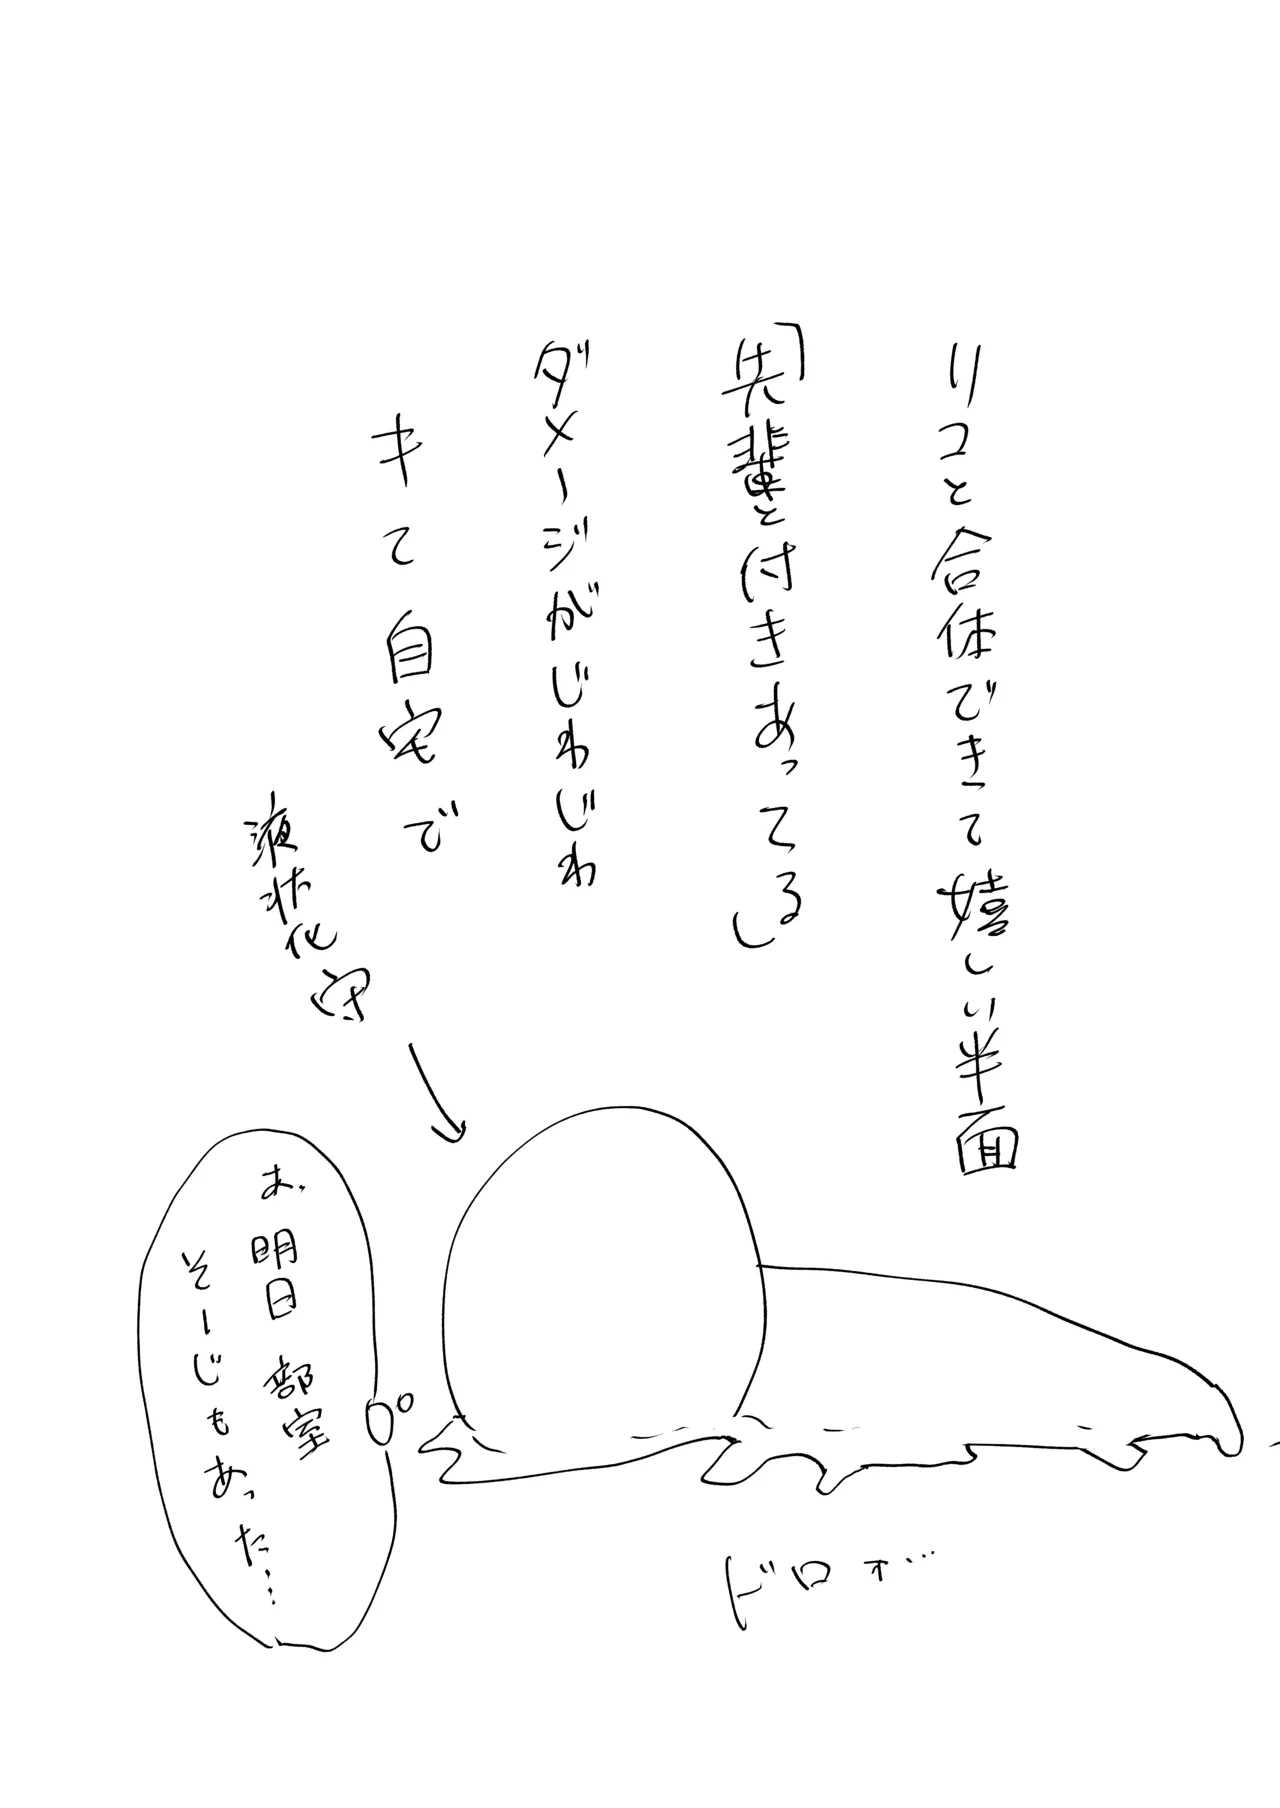 リコと合体できて嬉しい半面
「先輩と付きあってる」
ダメージがじわじわ
キて自宅で
液状化守
あ、明日 部室
そーじもあった…
ドロォ…